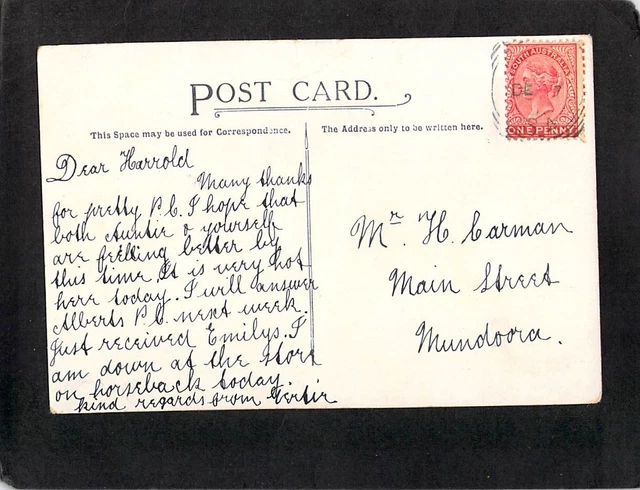 POST CARD.
This Space may be used for Correspondence.
The Address only to be written here.
SOUTH AUSTRALIA
DE 7
ONE PENNY
Dear Harrold
Many thanks
for pretty P.C. I hope that
both Auntie & yourself
are feelling better by
this time. It is very hot
here today. I will answer
Alberts P.C. next week.
Just received Emilys. I
am down at the store
on horseback today.
kind regards from Gertie
Mr. H. Carman
Main Street
Mundoora.